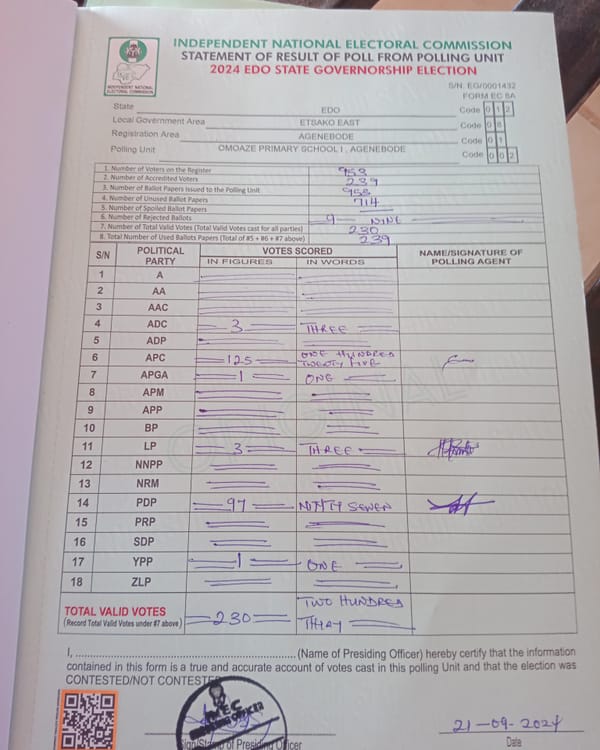 INDEPENDENT NATIONAL ELECTORAL COMMISSION
STATEMENT OF RESULT OF POLL FROM POLLING UNIT
2024 EDO STATE GOVERNORSHIP ELECTION
INEC
INDEPENDENT NATIONAL ELECTORAL COMMISSION
S/N. EG/0001432
FORM EC 8A
State EDO Code 0 1 2
Local Government Area ETSAKO EAST Code 0 8
Registration Area AGENEBODE Code 0 1
Polling Unit OMOAZE PRIMARY SCHOOL I, AGENEBODE Code 0 0 2
1. Number of Voters on the Register 953
2. Number of Accredited Voters 239
3. Number of Ballot Papers Issued to the Polling Unit 953
4. Number of Unused Ballot Papers 714
5. Number of Spoiled Ballot Papers
6. Number of Rejected Ballots 9 NINE
7. Number of Total Valid Votes (Total Valid Votes cast for all parties) 230
8. Total Number of Used Ballots Papers (Total of #5 + #6 + #7 above) 239
S/N POLITICAL PARTY VOTES SCORED NAME/SIGNATURE OF POLLING AGENT
IN FIGURES IN WORDS
1 A
2 AA
3 AAC
4 ADC 3 THREE
5 ADP
6 APC 125 ONE HUNDRED TWENTY FIVE
7 APGA 1 ONE
8 APM
9 APP
10 BP
11 LP 3 THREE
12 NNPP
13 NRM
14 PDP 97 NINTH SEVEN
15 PRP
16 SDP
17 YPP 1 ONE
18 ZLP
TOTAL VALID VOTES 230 TWO HUNDRED
(Record Total Valid Votes under #7 above) THIRTY
I, (Name of Presiding Officer) hereby certify that the information
contained in this form is a true and accurate account of votes cast in this polling Unit and that the election was
CONTESTED/NOT CONTESTED
INEC
Sign/Stamp of Presiding Officer
21-09-2024
Date